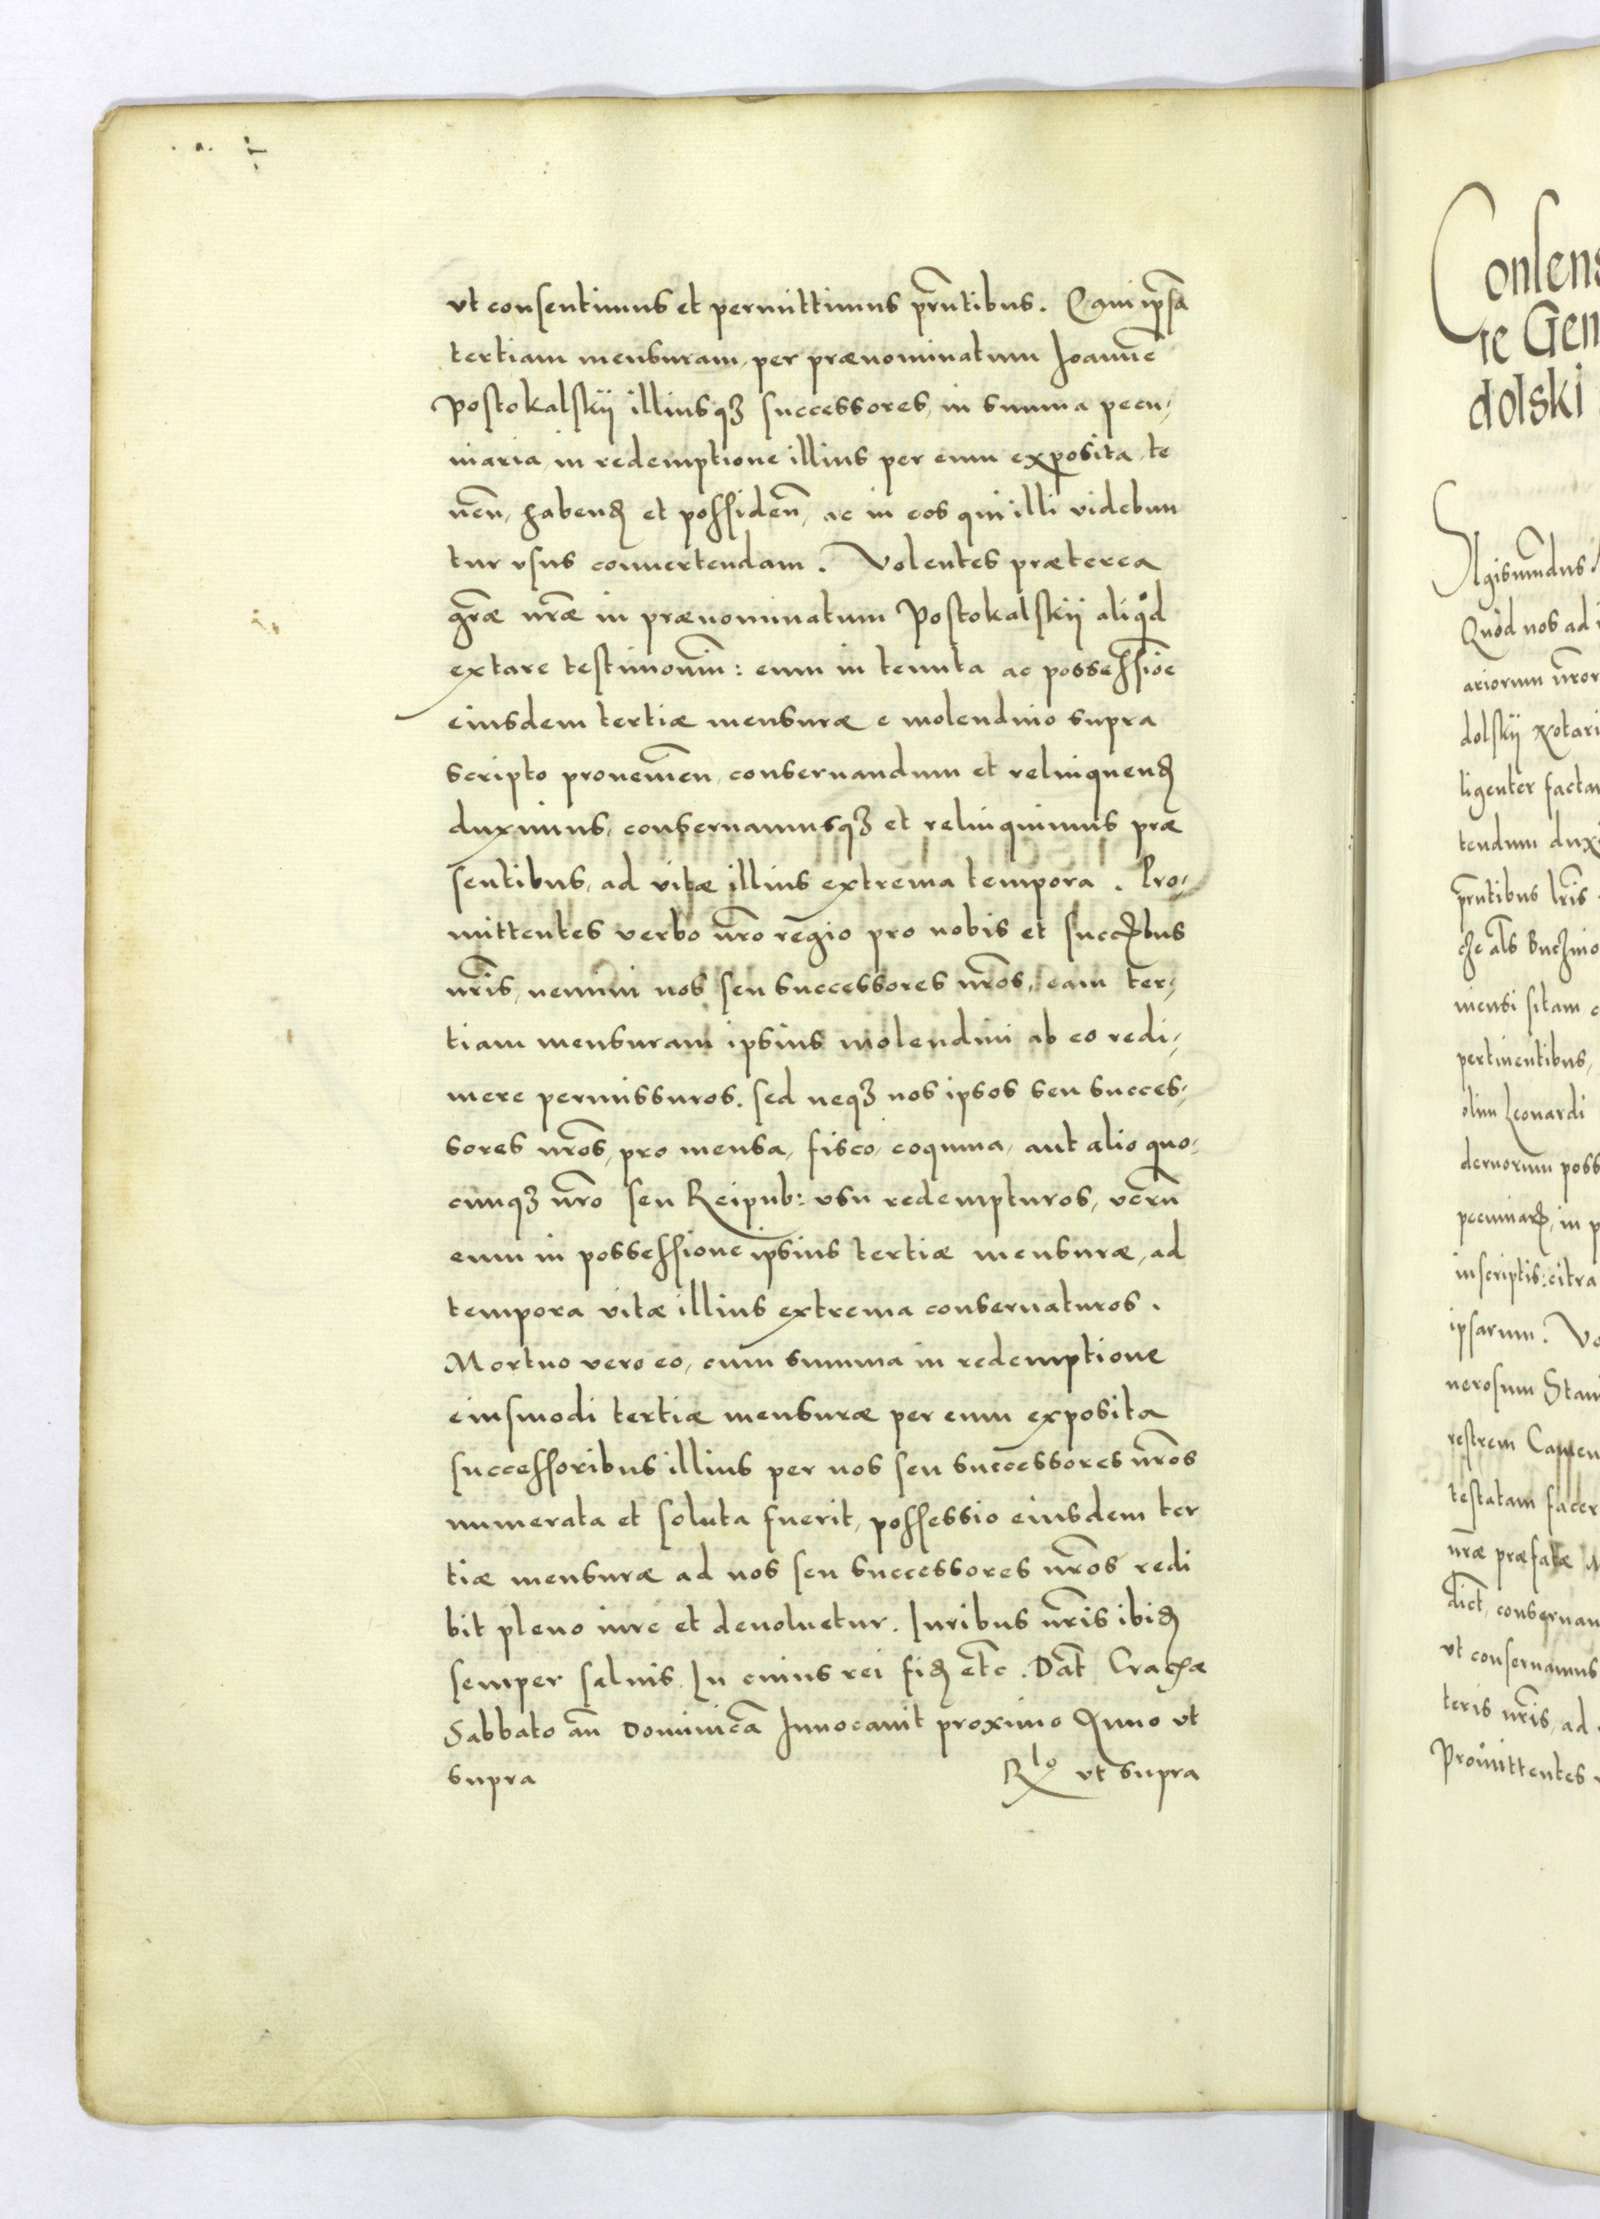 vt consentimus et permittimus prñtibus. Quiqui ipsã
tertiam mensuram, per prænominatum Joannẽ
Postokalskij illiusqꝫ successores, in summa pecu,
niaria in redemptione illius per eum exposita, te
neñ, habenđ et possideñ, ac in eos qui illi videbun
tur vsus conuertendam. Volentes præterea
grãe nrãe in prænominatum Postokalskij aliqđ
extare testimoniũ: eum in tenuta ac possessiõe
eiusdem tertiæ mensuræ e molendino supra
scripto prouenieñ, conseruandum et relinquenđ
duximus, conseruamusqꝫ et relinquimus præ
sentibus, ad vitæ illius extrema tempora. Pro,
mittentes verbo nr̃o regio pro nobis et succꝭbus
nr̃is, nemini nos seu successores nr̃os, eam ter,
tiam mensuram ipsius molendini ab eo redi,
mere permissuros. sed neqꝫ nos ipsos seu succes,
sores nr̃os, pro mensa, fisco, coquina, aut alio quo,
cunqꝫ nr̃o seu Reipub: vsu redempturos, verũ
eum in possessione ipsius tertiæ mensuræ, ad
tempora vitæ illius extrema conseruaturos.
Mortuo vero eo, cum summa in redemptione
eiusmodi tertiæ mensuræ per eum exposita
successoribus illius per nos seu successores nr̃os
numerata et soluta fuerit, possessio eiusdem ter
tiæ mensuræ ad nos seu successores nr̃os redi
bit pleno iure et deuoluetur. Iuribus nr̃is ibiđ
semper saluis. In cuius rei fiđ etc̃. Dat̃ Cracꝭæ
Sabbato añ Dominicã Inuocauit proximo Anno vt
supra
Rlo vt supra
Consens
te Gen
dolski
Sigismundus
Quod nos ad
ariorum nr̃or
dolskij Notari
ligenter factam
tendum dux
prñtibus lr̃is
che al̃s Buchino
mensi sitam
pertinentibus,
olim Leonardi
dernorum poss
pecuniarꝭ, in p
inscriptis: citra
ipsarum. Vo
nerosum Stani
restrem Camen
testatam facer
nrãe præfatæ
dict̃, conseruan
vt conseruamus
teris nr̃is, ad
Promittentes